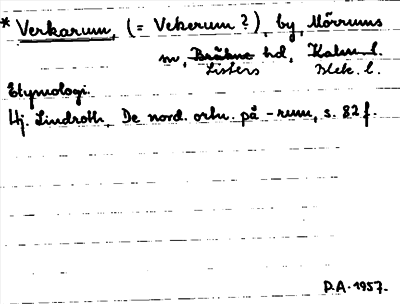 * Verkarum, (= Vekerum?), by, Mörrums
sn, Bräkne hd, Kalm. l.
Listers Blek. l.
Etymologi.
Hj. Lindroth, De nord. ortn. på -rum, s. 82 f.
D.A. 1957.